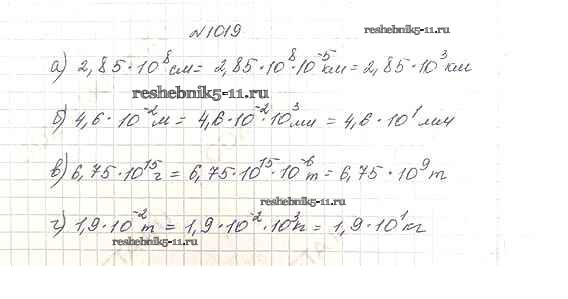 №1019
reshebnik5-11.ru
а) 2,85·10⁸см = 2,85·10⁸·10⁻⁵км = 2,85·10³км
reshebnik5-11.ru
б) 4,6·10⁻²м = 4,6·10⁻²·10³мм = 4,6·10¹мм
в) 6,75·10¹⁵г = 6,75·10¹⁵·10⁻⁶т = 6,75·10⁹т
reshebnik5-11.ru
г) 1,9·10⁻²т = 1,9·10⁻²·10³кг = 1,9·10¹кг
reshebnik5-11.ru